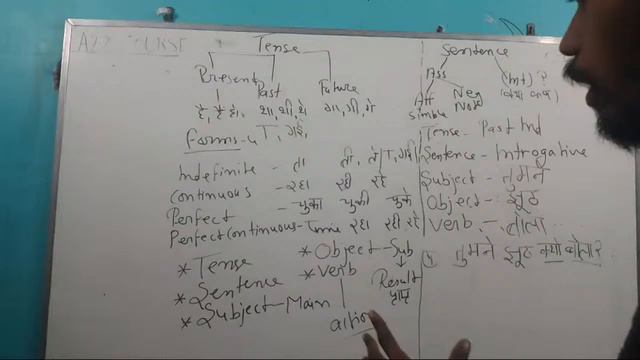 Tense
Present Past Future
है, हैं हो, था, थी, थे गा, गी, गे
Forms - T, गई,
Indefinite - ता ती, ते/T, गई/
Continuous - रहा रही रहे
Perfect - चुका चुकी चुके
Perfect Continuous - Time रहा रही रहे
* Tense
* Sentence
* Subject - Main
* Object - Sub
* Verb
Result
action
Sentence
Ass (Int) ?
Aff Neg
Simble
Tense - Past Ind
Sentence - Introgative
Subject - तुमने
Object - झूठ
Verb -
तुमने झूठ क्यों बोला ?